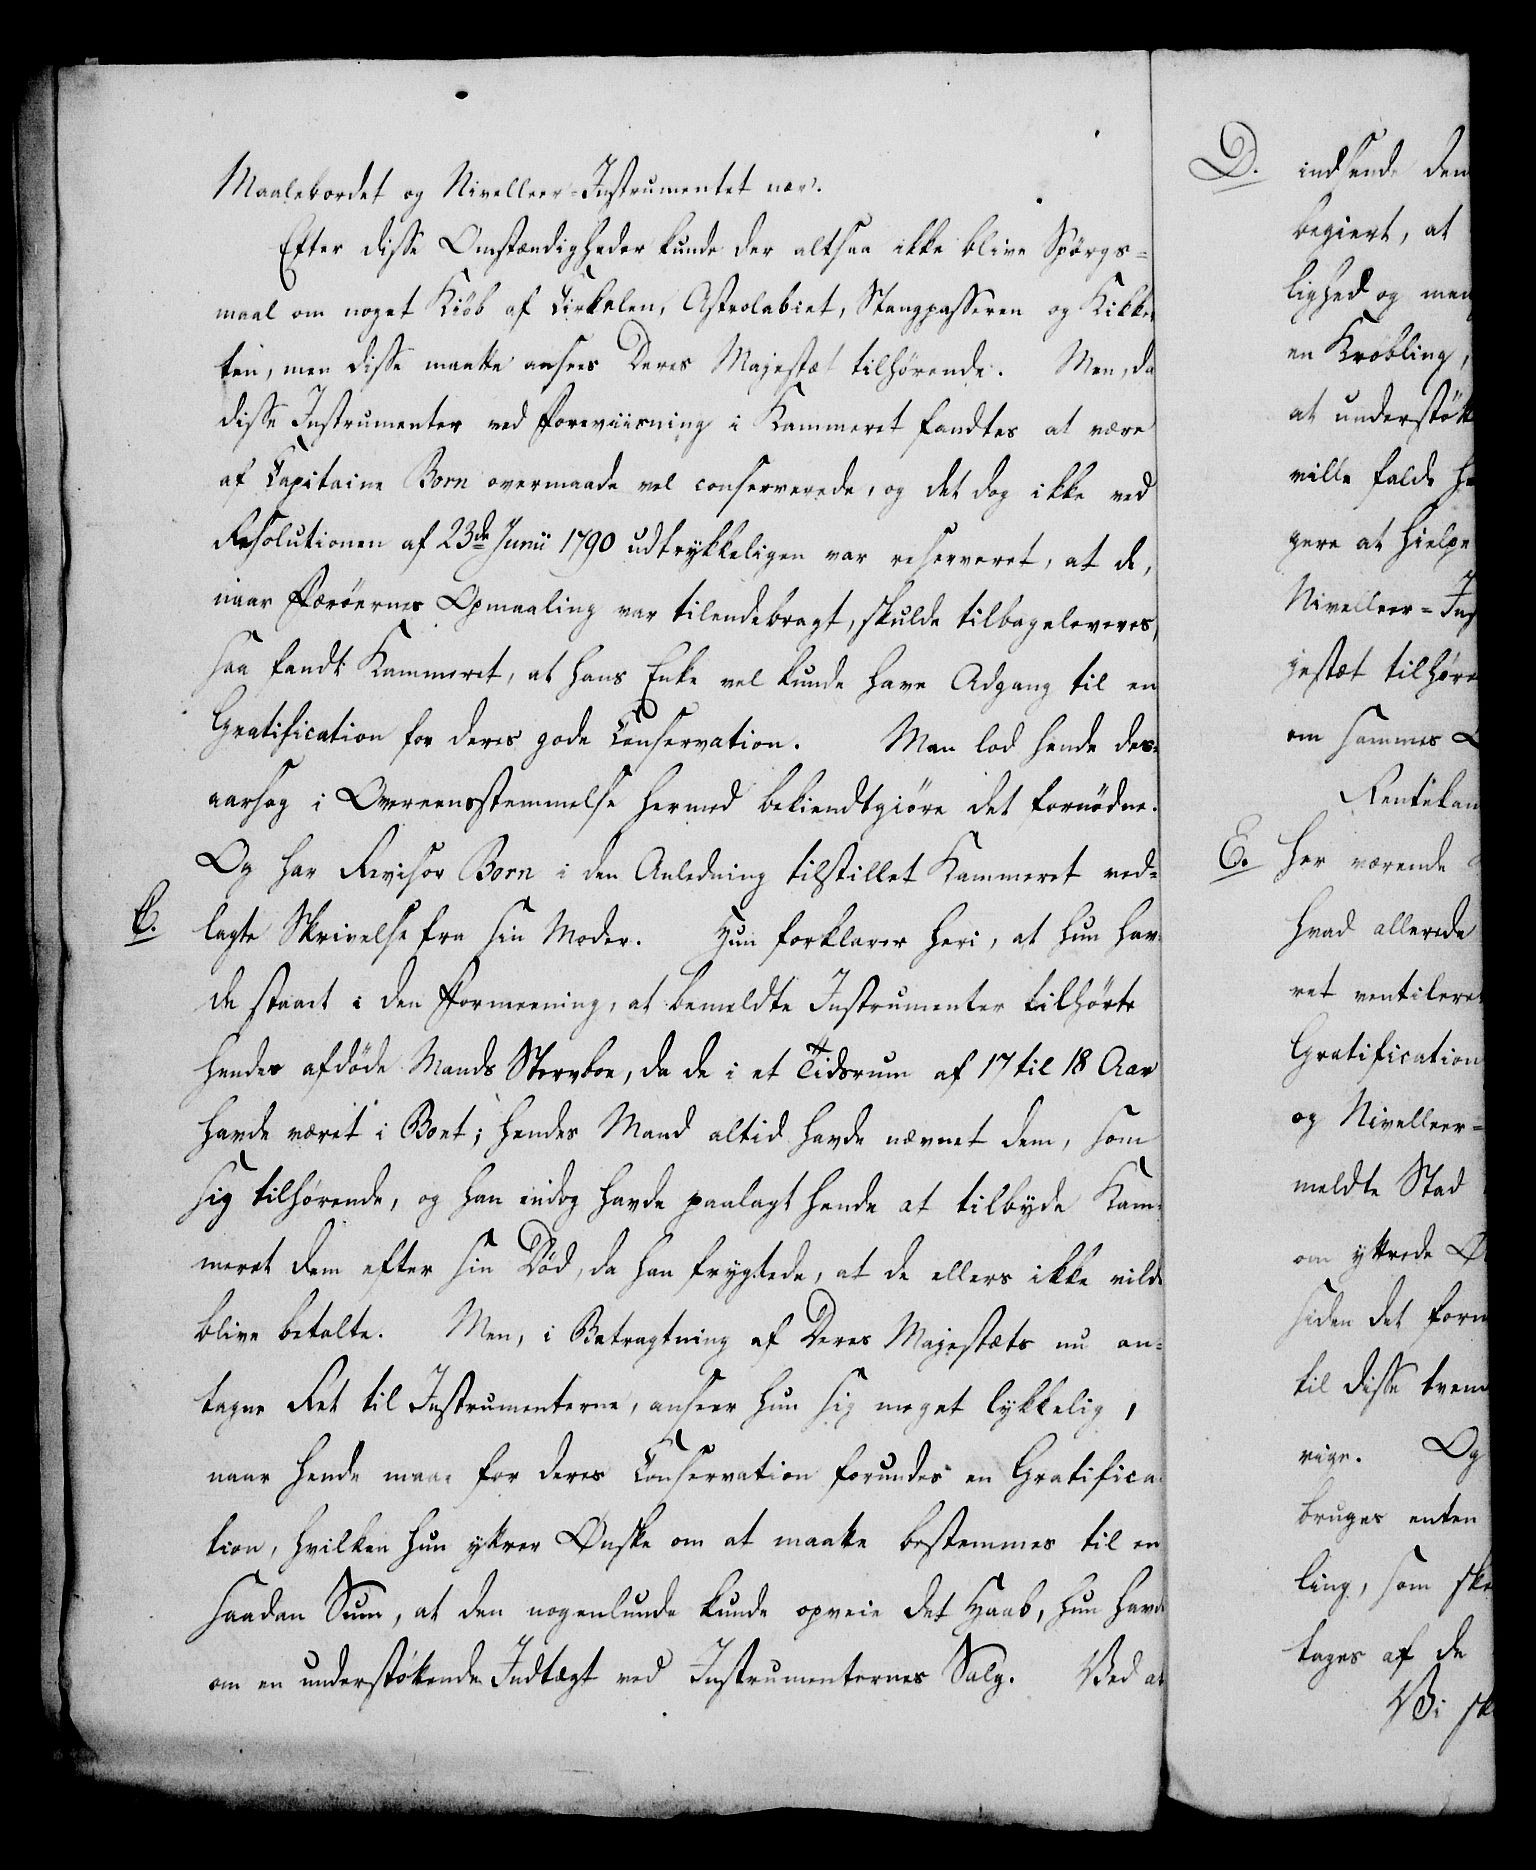 Maalebordet og Nivelleer-Instrumentet nær.
Efter disse Omstændigheder kunde der altsaa ikke blive Spörgs=
maal om noget Kiöb af Cirkelen, Astrolabiet, Stangpasseren og Kikker
ten, men disse maatte ansees Deres Majestæt tilhørende. Men, da
disse Instrumenter ved Foreviisning i Kammeret fandtes at være
af Capitaine Born overmaade vel conserverede, og det dog ikke ved
Resolutionen af 23de Junii 1790 udtrykkeligen var reserveret, at de,
naar Færöernes Opmaaling var tilendebragt, skulde tilbageleveres,
saa fandt Kammeret, at hans Enke vel kunde have Adgang til en
Gratification for deres gode Conservation. Man lod hende des=
aarsag i Overeensstemmelse hermed bekiendtgiöre det fornödne.
Og har Revisor Born i den Anledning tilstillet Kammeret ved=
C. lagte Skrivelse fra sin Moder. Hun forklarer heri, at hun hav
de staaet i den Formeening, at bemeldte Instrumenter tilhørte
hendes afdöde Mands Stervboe, da de i et Tidsrum af 17 til 18 Aar
havde været i Boet; hendes Mand altid havde nævnet dem, som
sig tilhørende, og han endog havde paalagt hende at tilbyde Kam=
meret dem efter sin Död, da han frygtede, at de ellers ikke vilde
blive betalte. Men, i Betragtning af Deres Majestæts nu an=
tagne Ret til Instrumenterne, anseer hun sig meget lykkelig,
naar hende maae for deres Conservation forundes en Gratifica
tion, hvilken hun yttrer Ønske om at maatte bestemmes til en
saadan Sum, at den nogenlunde kunde opveie det Haab, hun havde
om en understøttende Indtægt ved Instrumenternes Salg. Ved at
D. indsende den
begiert, at
lighed og men
en Krøbling,
at understøtt
ville falde
gere at hielpe
Nivelleer=Ins
jestæt tilhøre
om sammes
Rentekam
E. her værende
hvad allerede
ret ventileret
Gratification
og Nivelleer=
meldte Stad
om yttrede
siden det form
til disse tvend
rige. Og
bruges enten
ling, som sk
tages af de
Vi sk